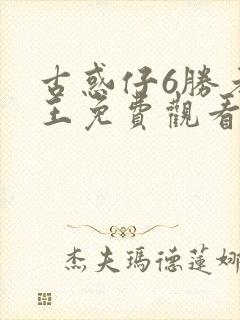 古惑仔6勝者
王免費觀看
杰夫瑪德蓮娜